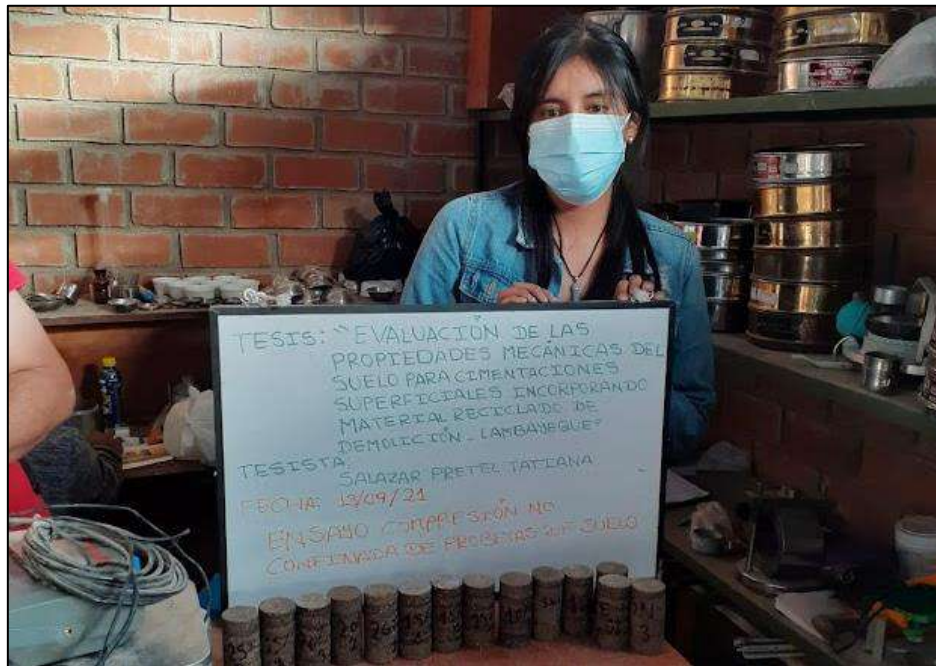 TESIS: "EVALUACIÓN DE LAS
PROPIEDADES MECÁNICAS DEL
SUELO PARA CIMENTACIONES
SUPERFICIALES INCORPORANDO
MATERIAL RECICLADO DE
DEMOLICIÓN - LAMBAYEQUE"
TESISTA:
SALAZAR PRETEL TATIANA
FECHA: 13/09/21
ENSAYO COMPRESIÓN NO
CONFINADA DE PROBETAS DE SUELO